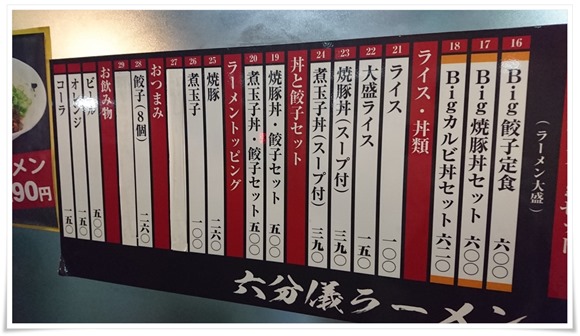 （ラーメン大盛）
16 Big餃子定食 六〇〇
17 Big焼豚丼セット 六〇〇
18 Bigカルビ丼セット 六二〇
ライス・丼類
21 ライス 一〇〇
22 大盛ライス 一五〇
23 焼豚丼（スープ付） 三九〇
24 煮玉子丼（スープ付） 三九〇
丼と餃子セット
19 焼豚丼・餃子セット 五〇〇
20 煮玉子丼・餃子セット 五〇〇
ラーメントッピング
25 焼豚 二六〇
26 煮玉子 一〇〇
27
おつまみ
28 餃子（8個） 二六〇
29
お飲み物
ビール 五〇〇
オレンジ 一五〇
コーラ 一五〇
六分儀ラーメン
メン
90円